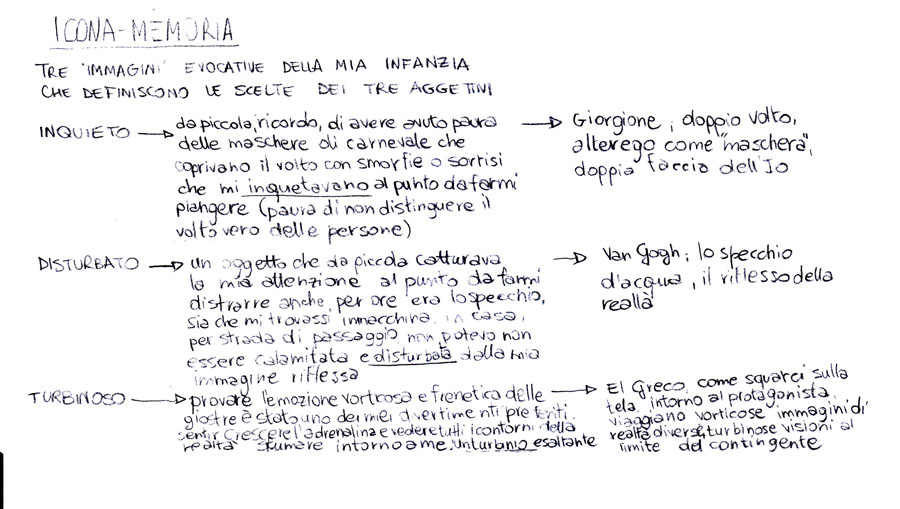 ICONA-MEMORIA
TRE 'IMMAGINI' EVOCATIVE DELLA MIA INFANZIA
CHE DEFINISCONO LE SCELTE DEI TRE AGGETTIVI
INQUIETO → da piccola, ricordo, di avere avuto paura
delle maschere di carnevale che
coprivano il volto con smorfie o sorrisi
che mi inquetavano al punto da farmi
piangere (paura di non distinguere il
volto vero delle persone)
→ Giorgione, doppio volto,
alterego come "maschera",
doppia faccia dell'Io
DISTURBATO → un oggetto che da piccola catturava
la mia attenzione al punto da farmi
distrarre anche per ore era lo specchio,
sia che mi trovassi in macchina, in casa,
per strada di passaggio non potevo non
essere calamitata e disturbata dalla mia
immagine riflessa
→ Van Gogh; lo specchio
d'acqua, il riflesso della
realtà
TURBINOSO → provare l'emozione vorticosa e frenetica delle
giostre è stato uno dei miei divertimenti preferiti.
sentir crescere l'adrenalina e vedere tutti i contorni della
realtà sfumare intorno a me. Un turbinio esaltante
→ El Greco, come squarci sulla
tela, intorno al protagonista
viaggiano vorticose immagini di
realtà diverse, turbinose visioni al
limite del contingente